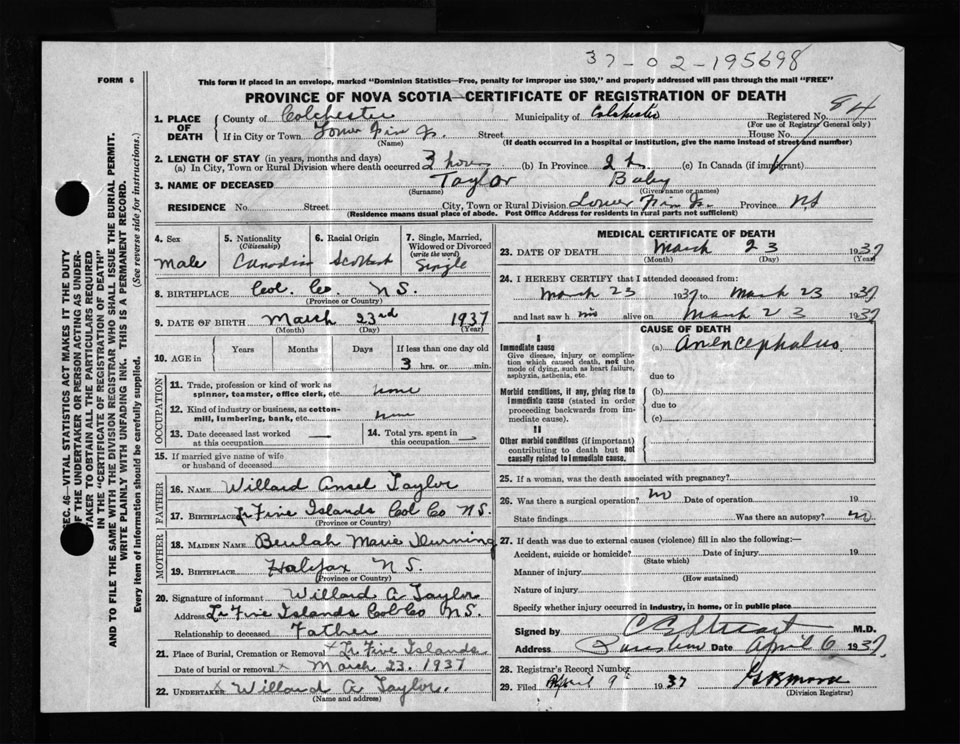 37-02-195698
FORM 6
This form if placed in an envelope, marked "Dominion Statistics—Free, penalty for improper use $300," and properly addressed will pass through the mail "FREE"
PROVINCE OF NOVA SCOTIA—CERTIFICATE OF REGISTRATION OF DEATH
84
1. PLACE OF DEATH County of Colchester Municipality of Colchester Registered No.
(For use of Registrar General only)
If in City or Town Street House No.
(Name) (If death occurred in a hospital or institution, give the name instead of street and number)
2. LENGTH OF STAY (in years, months and days)
(a) In City, Town or Rural Division where death occurred 3 hours (b) In Province (c) In Canada (if immigrant)
3. NAME OF DECEASED Taylor Baby
(Surname) (Given name or names)
RESIDENCE No. Street City, Town or Rural Division Lower Five Is. Province N.S.
(Residence means usual place of abode. Post Office Address for residents in rural parts not sufficient)
4. Sex
Male
5. Nationality
(Citizenship)
Canadian
6. Racial Origin
7. Single, Married, Widowed or Divorced
(write the word)
Single
8. BIRTHPLACE Col. Co. N S.
(Province or Country)
9. DATE OF BIRTH March 23rd 1937
(Month) (Day) (Year)
10. AGE in Years Months Days If less than one day old
3 hrs. or min.
OCCUPATION
11. Trade, profession or kind of work as spinner, teamster, office clerk, etc. none
12. Kind of industry or business, as cotton-mill, lumbering, bank, etc. none
13. Date deceased last worked at this occupation —
14. Total yrs. spent in this occupation —
15. If married give name of wife or husband of deceased
FATHER
16. NAME Willard Ansel Taylor
17. BIRTHPLACE Lr Five Islands Col Co N S.
(Province or Country)
MOTHER
18. MAIDEN NAME Beulah Marie
19. BIRTHPLACE Halifax N S.
(Province or Country)
20. Signature of informant Willard A Taylor
Address Lr Five Islands Col Co N S.
Relationship to deceased Father
21. Place of Burial, Cremation or Removal x Lr Five Islands
Date of burial or removal x March 23. 1937
22. UNDERTAKER x Willard A Taylor.
(Name and address)
MEDICAL CERTIFICATE OF DEATH
23. DATE OF DEATH March 23 1937
(Month) (Day) (Year)
24. I HEREBY CERTIFY that I attended deceased from:
March 23 1937 to March 23 1937
and last saw him alive on March 23 1937
CAUSE OF DEATH
I
Immediate cause
Give disease, injury or complication which caused death, not the mode of dying, such as heart failure, asphyxia, asthenia, etc.
(a) Anencephalus
due to
Morbid conditions, if any, giving rise to immediate cause (stated in order proceeding backwards from immediate cause).
(b)
due to
(c)
II
Other morbid conditions (if important) contributing to death but not causally related to immediate cause.
25. If a woman, was the death associated with pregnancy?
26. Was there a surgical operation? no Date of operation 19
State findings Was there an autopsy? no
27. If death was due to external causes (violence) fill in also the following:—
Accident, suicide or homicide? Date of injury 19
(State which)
Manner of injury
(How sustained)
Nature of injury
Specify whether injury occurred in industry, in home, or in public place
Signed by M.D.
Address Date April 6 1937
28. Registrar's Record Number
29. Filed April 9 1937
(Division Registrar)
SEC. 46—VITAL STATISTICS ACT MAKES IT THE DUTY
OF THE UNDERTAKER OR PERSON ACTING AS UNDER-
TAKER TO OBTAIN ALL THE PARTICULARS REQUIRED
IN THE "CERTIFICATE OF REGISTRATION OF DEATH"
AND TO FILE THE SAME WITH THE DIVISION REGISTRAR WHO SHALL ISSUE THE BURIAL PERMIT.
WRITE PLAINLY WITH UNFADING INK. THIS IS A PERMANENT RECORD.
Every item of Information should be carefully supplied. (See reverse side for instructions.)